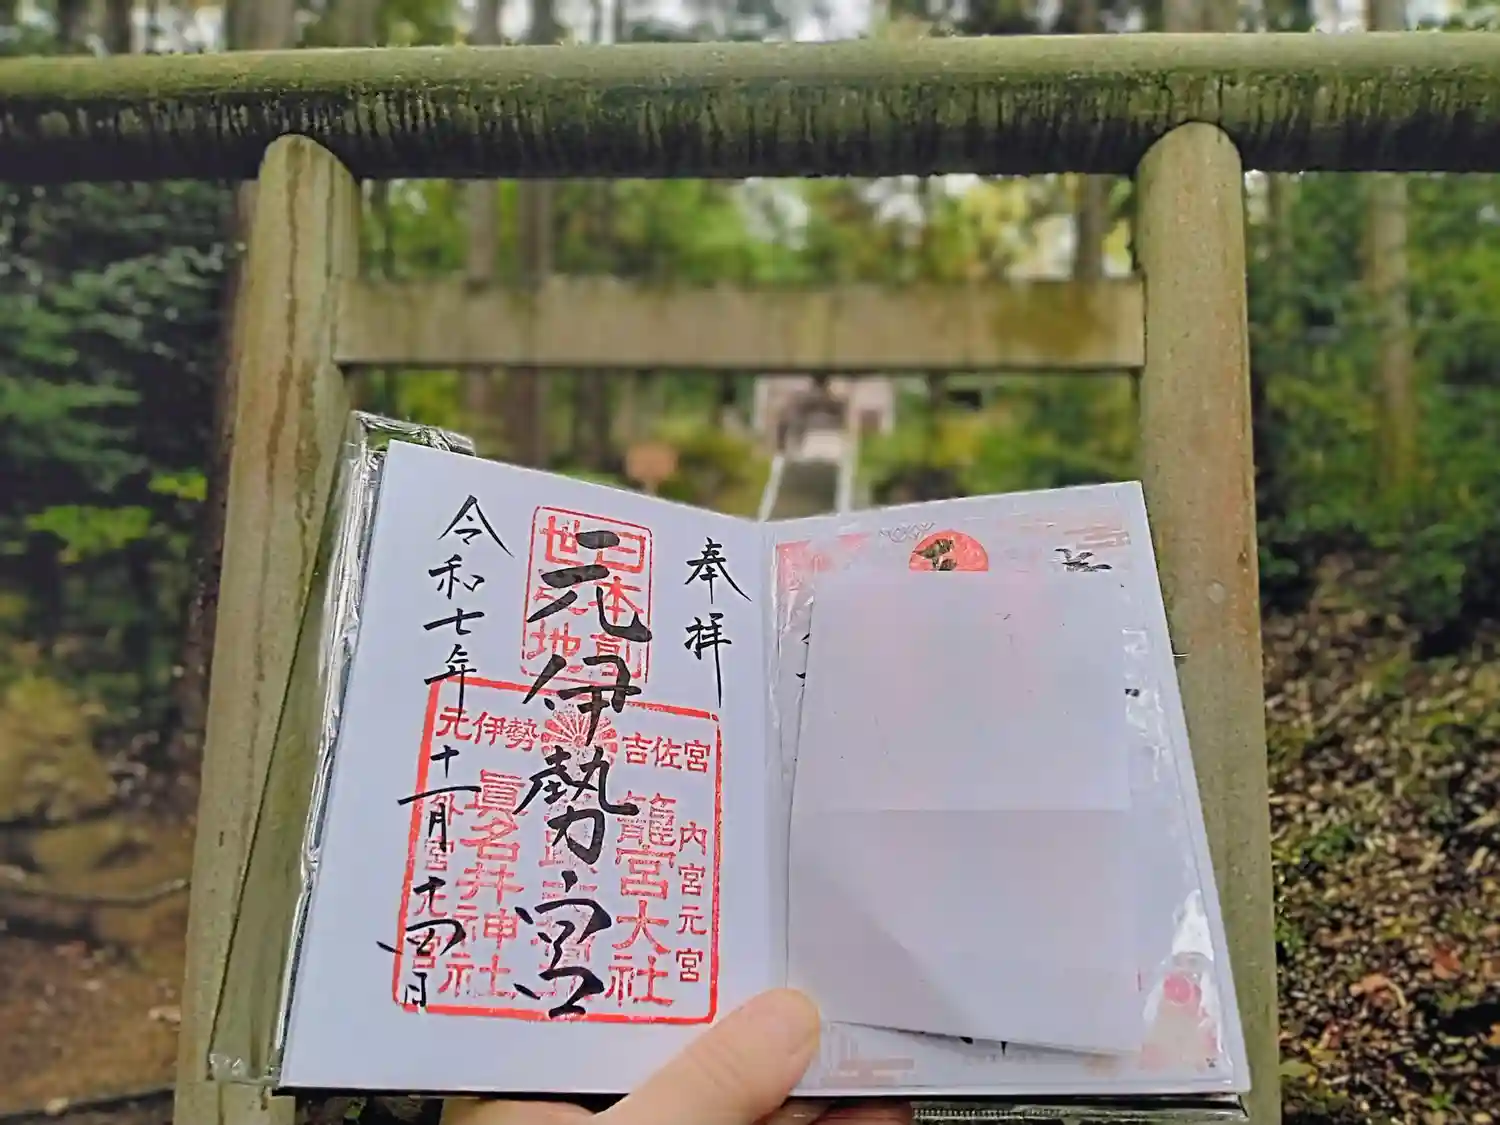 奉拝
元伊勢宮
令和七年十一月十四日
日本
世 地
元伊勢
吉佐宮
内宮元宮
籠宮大社
眞名井神社
外宮元宮